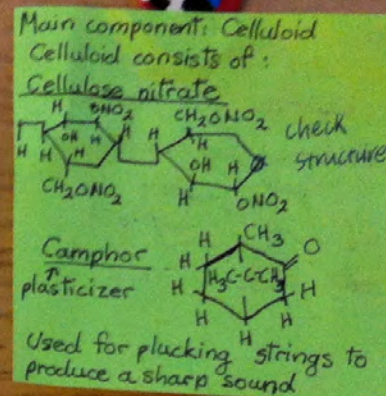 Main component: Celluloid
Celluloid consists of:
Cellulose nitrate
H ONO2 CH2ONO2 check
H OH H H H H structure
H H H OH H O
CH2ONO2 H ONO2
Camphor H CH3 O
plasticizer H H3C-C-CH3 H
H H H H
Used for plucking strings to
produce a sharp sound